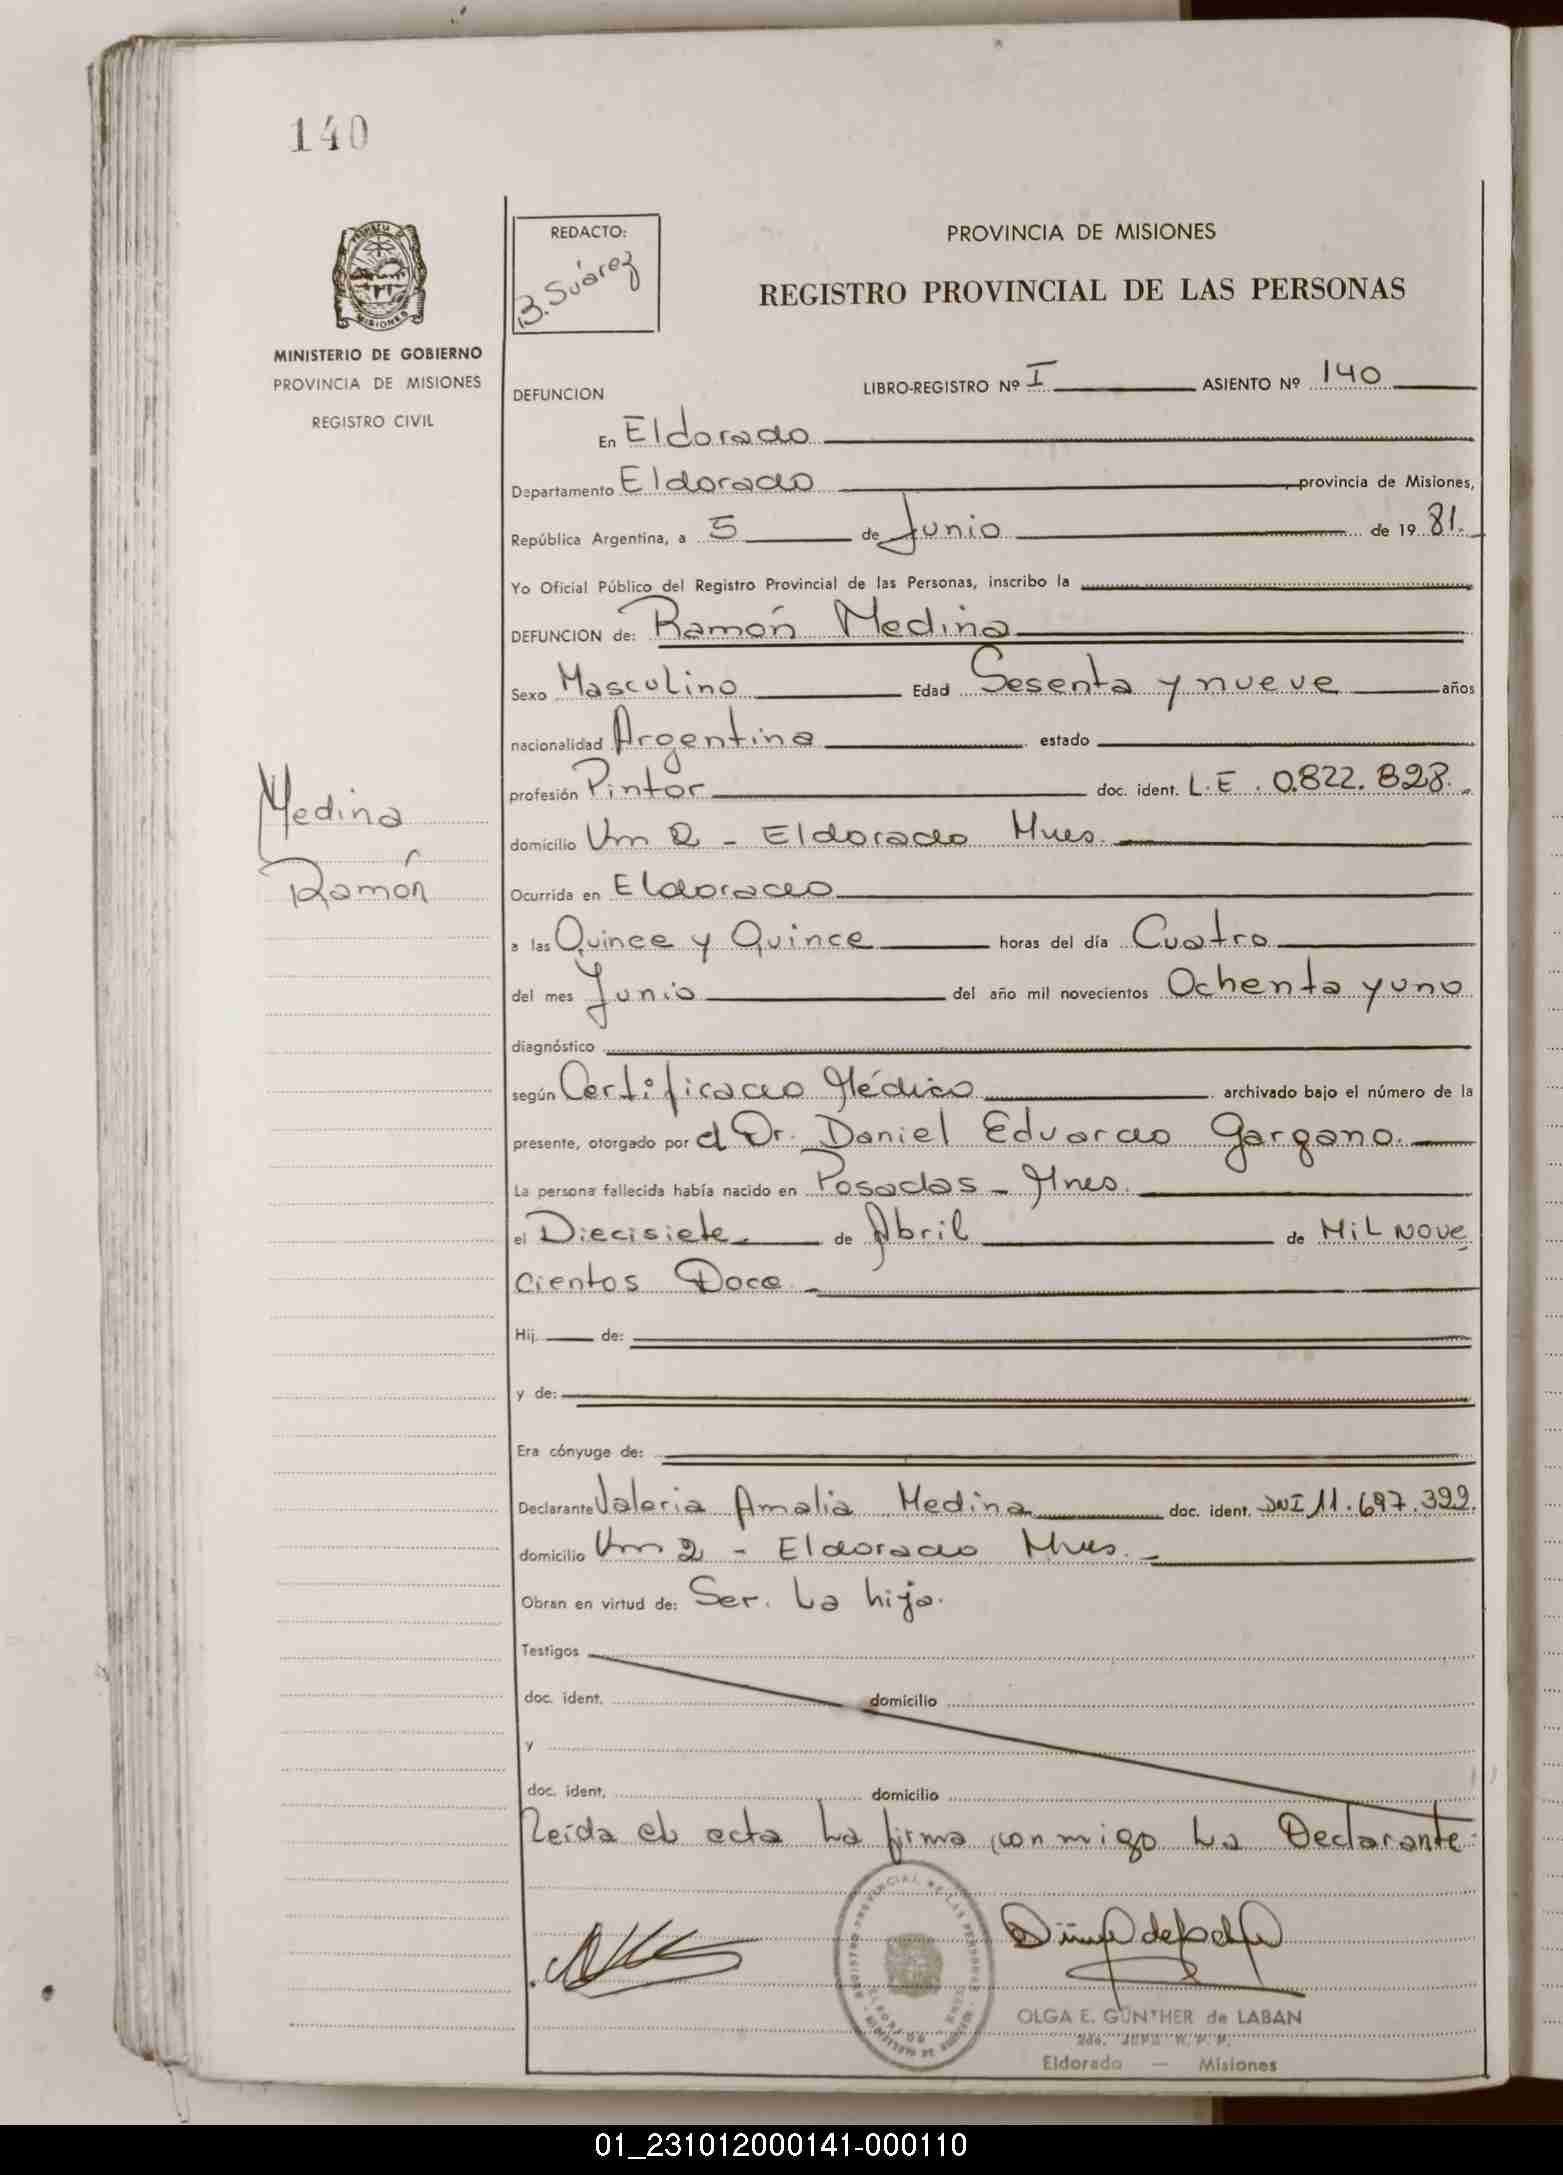 140
PROVINCIA DE MISIONES
MINISTERIO DE GOBIERNO
PROVINCIA DE MISIONES
REGISTRO CIVIL
REDACTO:
B. Suárez
PROVINCIA DE MISIONES
REGISTRO PROVINCIAL DE LAS PERSONAS
DEFUNCION LIBRO-REGISTRO Nº I ASIENTO Nº 140
En Eldorado
Departamento Eldorado , provincia de Misiones,
República Argentina, a 5 de Junio de 19 81.
Yo Oficial Público del Registro Provincial de las Personas, inscribo la
DEFUNCION de: Ramón Medina
Sexo Masculino Edad Sesenta y nueve años
nacionalidad Argentina estado
profesión Pintor doc. ident. L.E. 0.822.828.
domicilio Km 2 - Eldorado Mnes.
Ocurrida en Eldorado
a las Quince y Quince horas del día Cuatro
del mes Junio del año mil novecientos Ochenta y uno
diagnóstico
según Certificado Médico archivado bajo el número de la
presente, otorgado por el Dr. Daniel Eduardo Gargano.
La persona fallecida había nacido en Posadas - Mnes.
el Diecisiete de Abril de Mil Nove
cientos Doce
Hij de:
y de:
Era cónyuge de:
Declarante Valeria Amalia Medina doc. ident. DNI 11.697.399.
domicilio Km 2 - Eldorado Mnes.
Obran en virtud de: Ser. La hija.
Testigos
doc. ident. domicilio
y
doc. ident. domicilio
Leída el acta La firma conmigo La Declarante.
Medina
Ramón
REGISTRO PROVINCIAL DE LAS PERSONAS
OLGA E. GÜNTHER de LABAN
Eldorado — Misiones
01_231012000141-000110